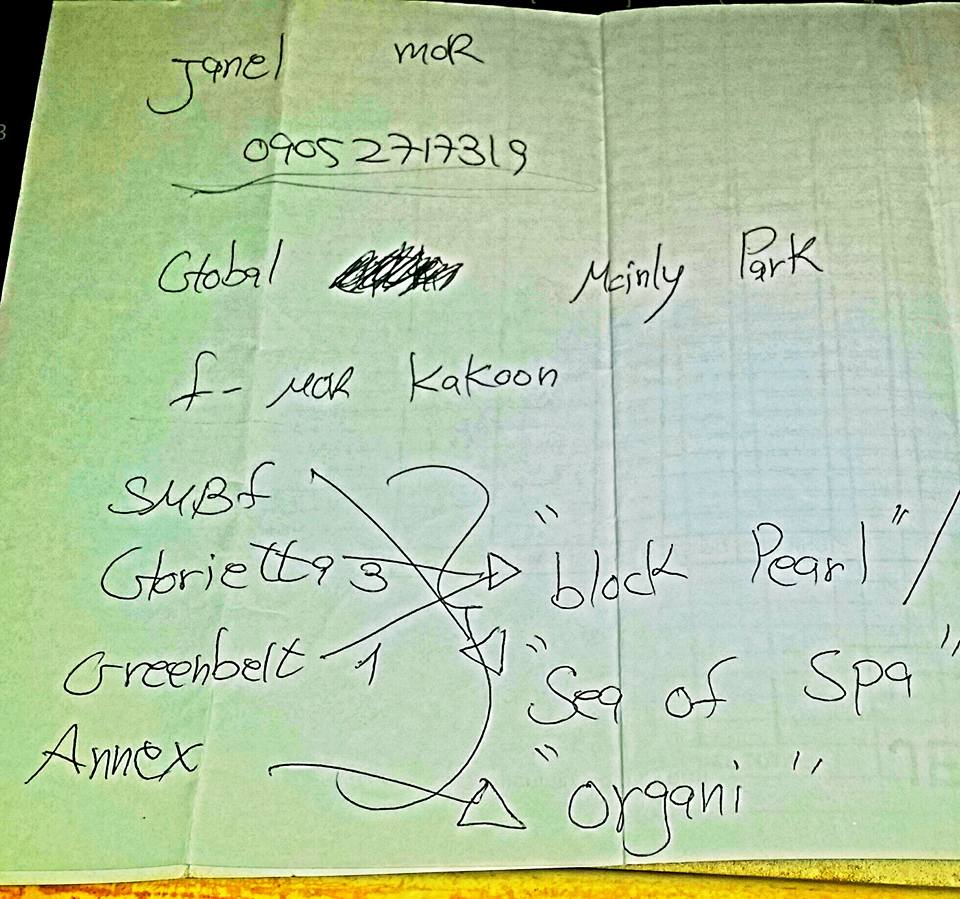 Janel MOR
09052717319
Global Mainly Park
f- MOR Kakoon
SMBf
Glorietta 3 "block Pearl" /
Greenbelt 1 "Sea of Spa"
Annex "Organi"